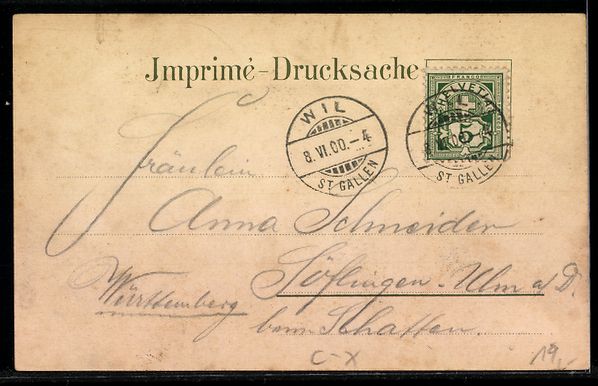 Imprimé-Drucksache
FRANCO
HELVETIA
5
WIL
8.VI.00.-4
ST GALLEN
ST GALLEN
Fräulein
Anna Schneider
Söflingen-Ulm a/D.
Württemberg
beim Schatten.
C-X
19,-